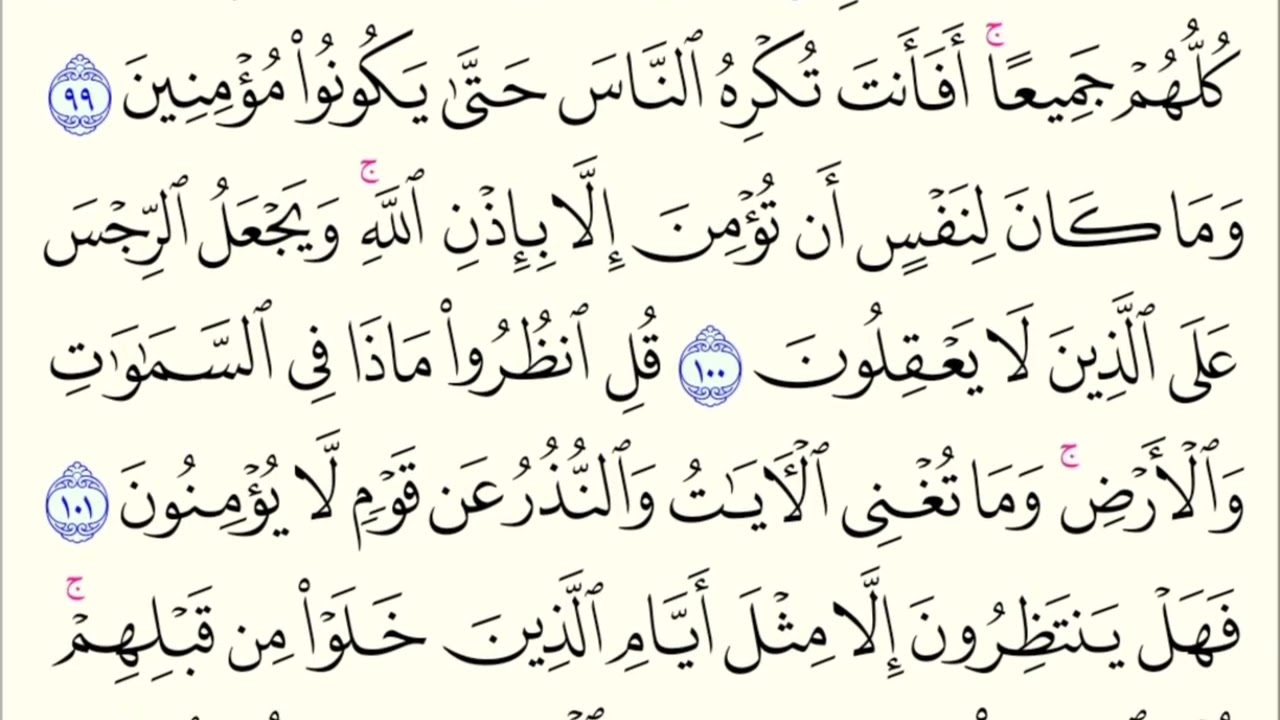 كُلُّهُمْ جَمِيعًا ۚ أَفَأَنتَ تُكْرِهُ ٱلنَّاسَ حَتَّىٰ يَكُونُوا۟ مُؤْمِنِينَ ٩٩
وَمَا كَانَ لِنَفْسٍ أَن تُؤْمِنَ إِلَّا بِإِذْنِ ٱللَّهِ ۚ وَيَجْعَلُ ٱلرِّجْسَ
عَلَى ٱلَّذِينَ لَا يَعْقِلُونَ ١٠٠ قُلِ ٱنظُرُوا۟ مَاذَا فِى ٱلسَّمَـٰوَٰتِ
وَٱلْأَرْضِ ۚ وَمَا تُغْنِى ٱلْـَٔايَـٰتُ وَٱلنُّذُرُ عَن قَوْمٍ لَّا يُؤْمِنُونَ ١٠١
فَهَلْ يَنتَظِرُونَ إِلَّا مِثْلَ أَيَّامِ ٱلَّذِينَ خَلَوْا۟ مِن قَبْلِهِمْ ۚ